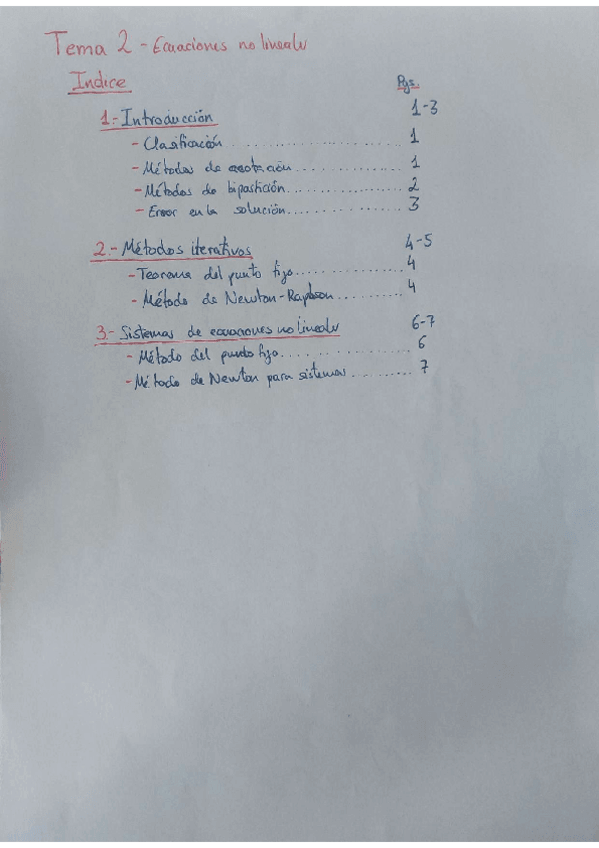 Tema 2 - Ecuaciones no lineales
Indice Pgs.
1.- Introducción 1-3
- Clasificación 1
- Métodos de acotación 1
- Métodos de bipartición 2
- Error en la solución 3
2.- Métodos iterativos 4-5
- Teorema del punto fijo 4
- Método de Newton-Raphson 4
3.- Sistemas de ecuaciones no lineales 6-7
- Método del punto fijo 6
- Método de Newton para sistemas 7